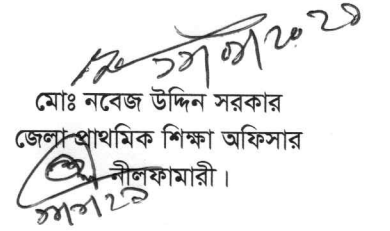 মোঃ নবেজ উদ্দিন সরকার
জেলা প্রাথমিক শিক্ষা অফিসার
নীলফামারী।